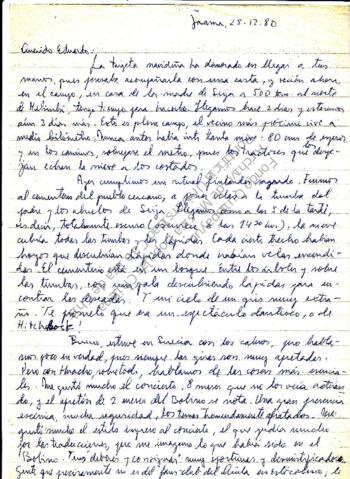 Joarma, 25-12-80
Querido Eduardo:
La tarjeta navideña ha demorado en llegar a tus
manos, pues pensaba acompañarla con una carta, y recién ahora
en el campo, en casa de los padres de Seija a 500 kms. al norte
de Helsinki, tengo tiempo para hacerlo. Llegamos hace 2 días y estaremos
aún 3 días más. Esto es pleno campo, el vecino más próximo vive a
medio kilómetro. Nunca antes había visto tanta nieve: 80 cms de espesor
y en los caminos, sobrepasa el metro, pues los tractores que los despe-
jan echan la nieve a los costados.
Ayer cumplimos un ritual finlandés sagrado. Fuimos
al cementerio del pueblo cercano, a poner velas a la tumba del
padre y los abuelos de Seija. Llegamos como a las 5 de la tarde,
es decir, totalmente oscuro (oscurece a las 14.30 hrs.), la nieve
cubría todas las tumbas y las lápidas. Cada cierto trecho habían
hoyos que descubrían lápidas donde habían velas encendi-
das. El cementerio está en un bosque. Entre los árboles y sobre
las tumbas, con una pala descubriendo lápidas para en-
contrar las deseadas. Y un cielo de un gris muy extra-
ño. Te prometo que era un espectáculo dantesco, o de
Hitchcock!
Bueno, estuve en Suecia con los cabros, pero habla-
mos poco en verdad, pues siempre las giras son muy apretadas.
Pero con Horacho, sobretodo, hablamos de las cosas más esencia-
les. Me gustó mucho el concierto, 8 meses que no los veía actuan-
do, y el efecto de 2 meses del Bobino se nota. Una gran presencia
escénica, mucha seguridad, los temas tremendamente apretados. Me
gustó mucho el estilo impreso al concierto, el que perdía mucho
por las traducciones, pero me imagino lo que habrá sido en el
Bobino. Tus "deberes y consignas" muy oportunas y desmitificadoras.
Gente que precisamente no es del fans club del Quila en Estocolmo, le